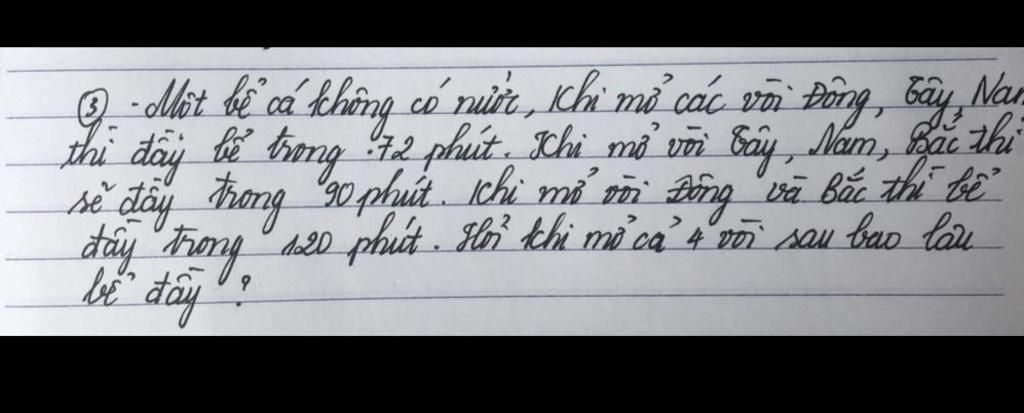 ③ - Một bể cá không có nước, Khi mở các vòi Đông, Tây, Nam
thì đầy bể trong 72 phút. Khi mở vòi Tây, Nam, Bắc thì
sẽ đầy trong 90 phút. Khi mở vòi Đông và Bắc thì bể
đầy trong 120 phút. Hỏi khi mở cả 4 vòi sau bao lâu
bể đầy ?